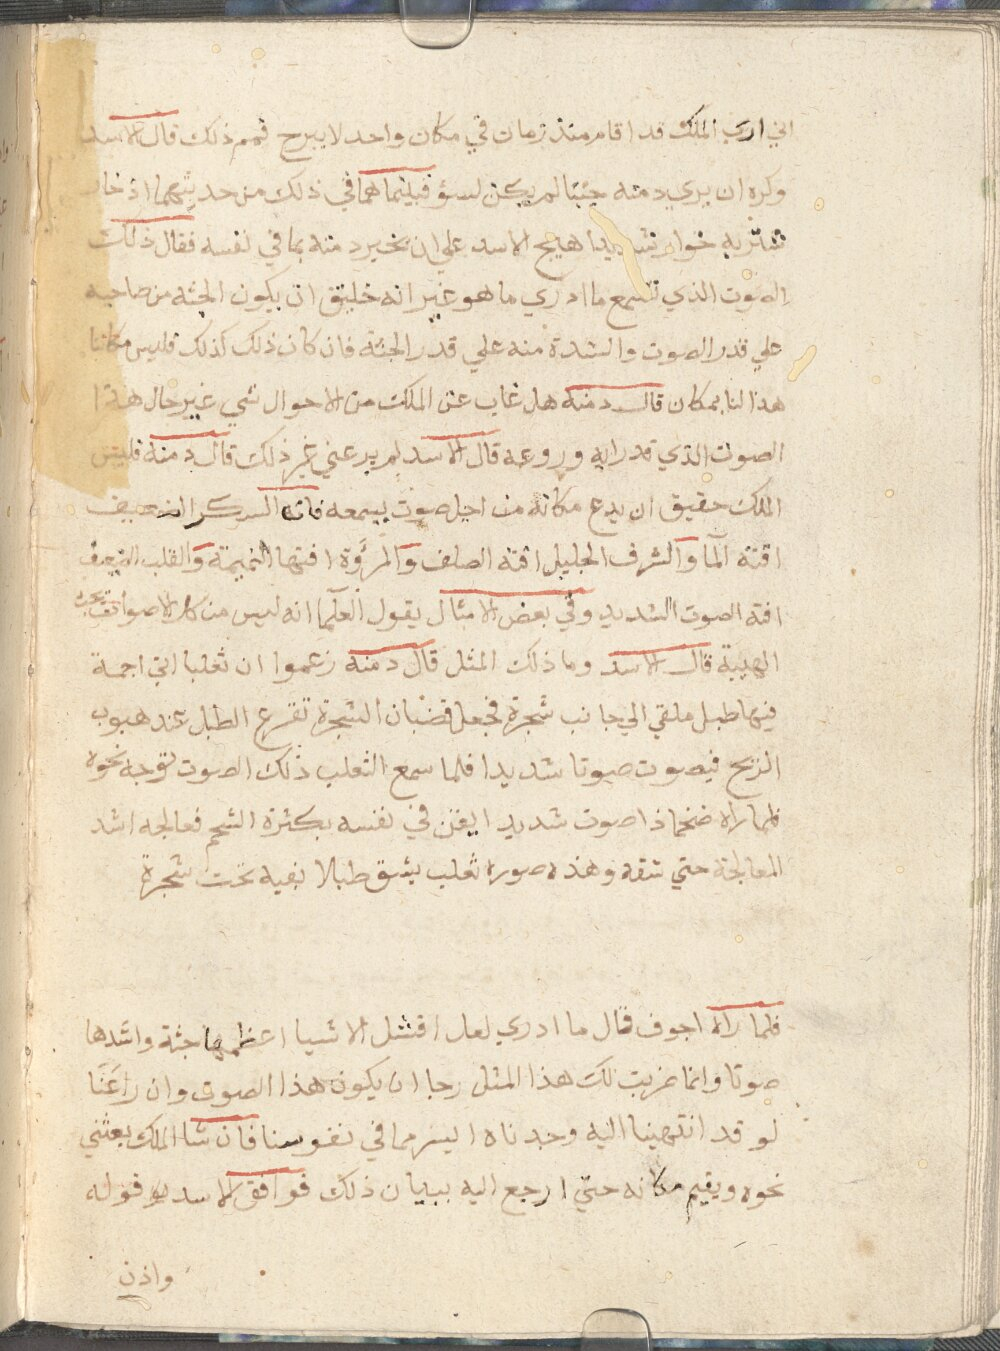 اني اري الملك قد اقام منذ زمان في مكان واحد لا يبرح فمم ذلك قال الاسد
وكره ان يري دمنه جبنا لم يكن لسؤ فبينما هما في ذلك من حديثهما اذ خار
شتربه خوارا شديدا هيج الاسد علي ان يخبر دمنه بما في نفسه فقال ذلك
الصوت الذي تسمع ما ادري ما هو غير انه خليق ان يكون الجثه من صاحبه
علي قدر الصوت والشدة منه علي قدر الجثه فان كان ذلك كذلك فليس مكاننا
هذا لنا بمكان قال دمنه هل غاب عن الملك من الاحوال شي غير حال هذا
الصوت الذي قد رابه وروعه قال الاسد لم يرعني غير ذلك قال دمنه فليس
الملك حقيق ان يدع مكانه من اجل صوت يسمعه فان السكر الضعيف
افته الما والشرف الجليل افته الصلف والمروة افتها النميمة والقلب الضعيف
افة الصوت الشديد وفي بعض الامثال يقول العلما انه ليس من كل الاصوات تجب
الهيبة قال الاسد وما ذلك المثل قال دمنه زعموا ان ثعلبا اتي اجمة
فيها طبل ملقي الي جانب شجرة فجعل قضبان الشجرة تقرع الطبل عند هبوب
الريح فيصوت صوتا شديدا فلما سمع الثعلب ذلك الصوت توجه نحوه
فلما راه ضخما ذا صوت شديد ايقن في نفسه بكثرة الشحم فعالجه اشد
المعالجة حتي شقه وهذه صورة ثعلب يشق طبلا بفيه تحت شجرة
فلما راه اجوف قال ما ادري لعل افشل الاشيا اعظمها جثة واشدها
صوتا وانما ضربت لك هذا المثل رجا ان يكون هذا الصوت وان راعنا
لو قد انتهينا اليه وجدناه ايسر مما في نفوسنا فان شا الملك بعثني
نحوه ويقيم مكانه حتي ارجع اليه ببيان ذلك فوافق الاسد قوله
واذن